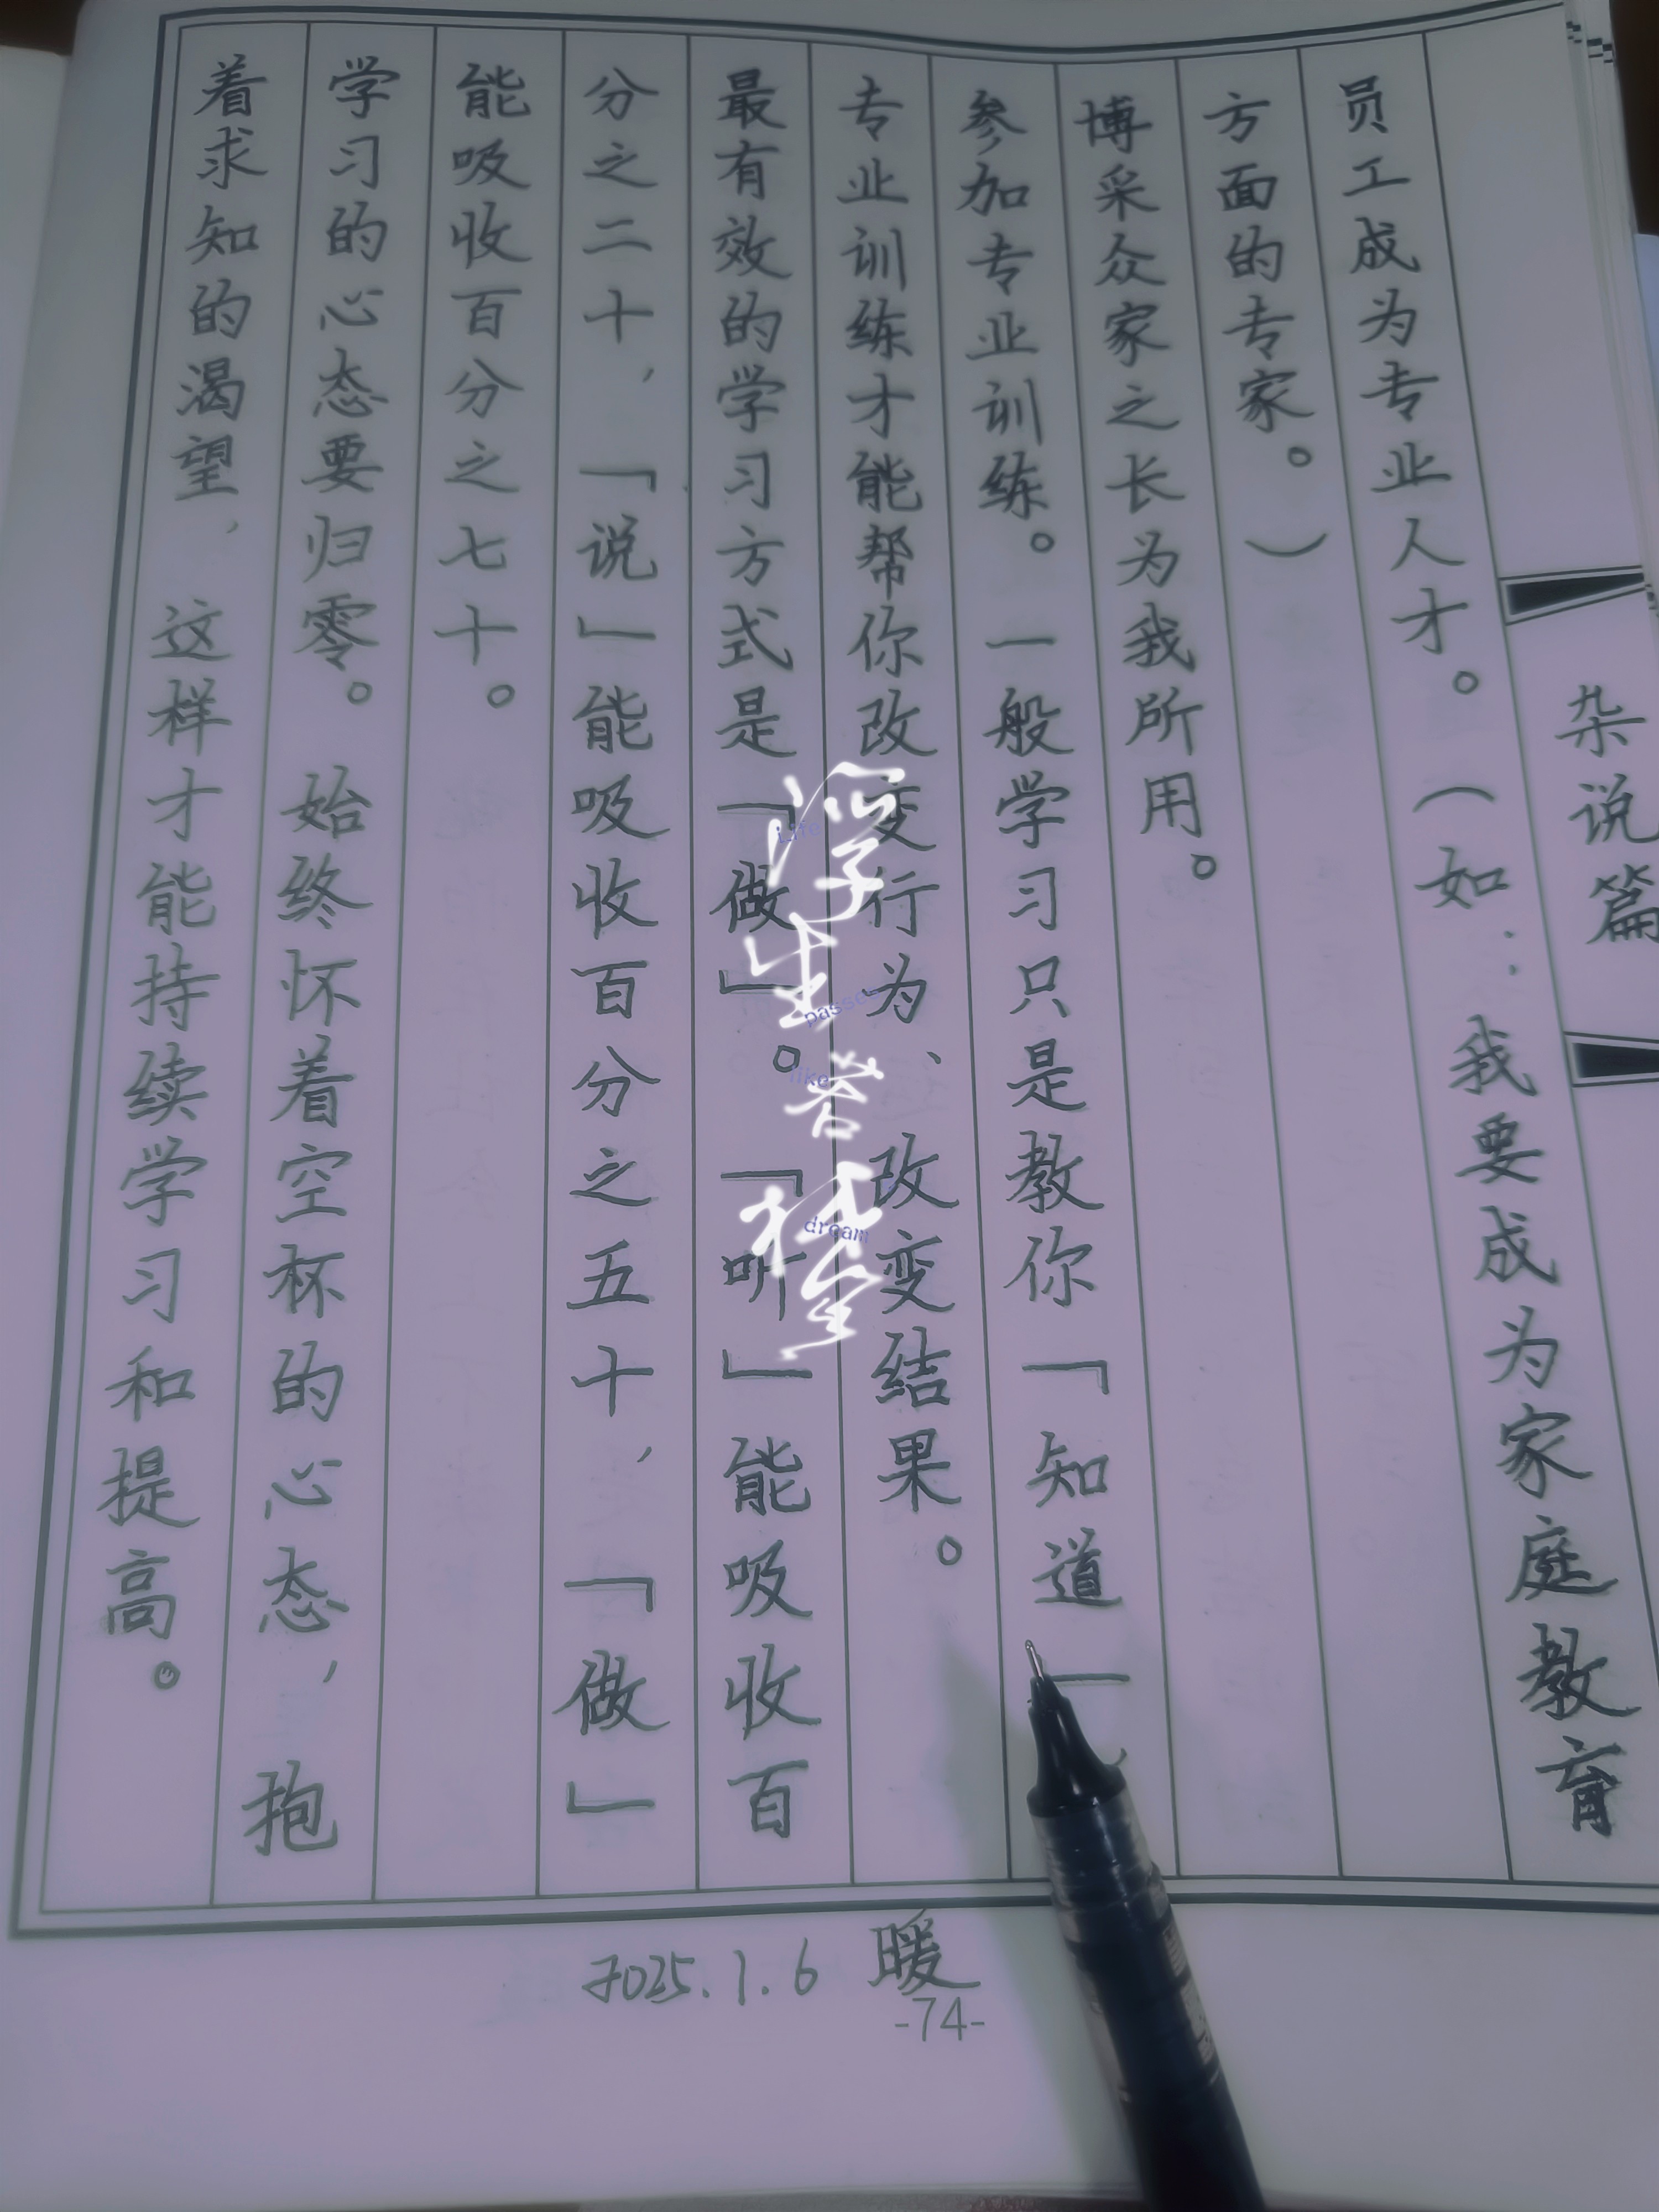 杂说篇
员工成为专业人才。（如：我要成为家庭教育
方面的专家。）
博采众家之长为我所用。
参加专业训练。一般学习只是教你「知道」，
专业训练才能帮你改变行为、改变结果。
最有效的学习方式是「做」。「听」能吸收百
分之二十，「说」能吸收百分之五十，「做」
能吸收百分之七十。
学习的心态要归零。始终怀着空杯的心态，抱
着求知的渴望，这样才能持续学习和提高。
浮生若梦
life passes like dream
2025.1.6 暖
-74-